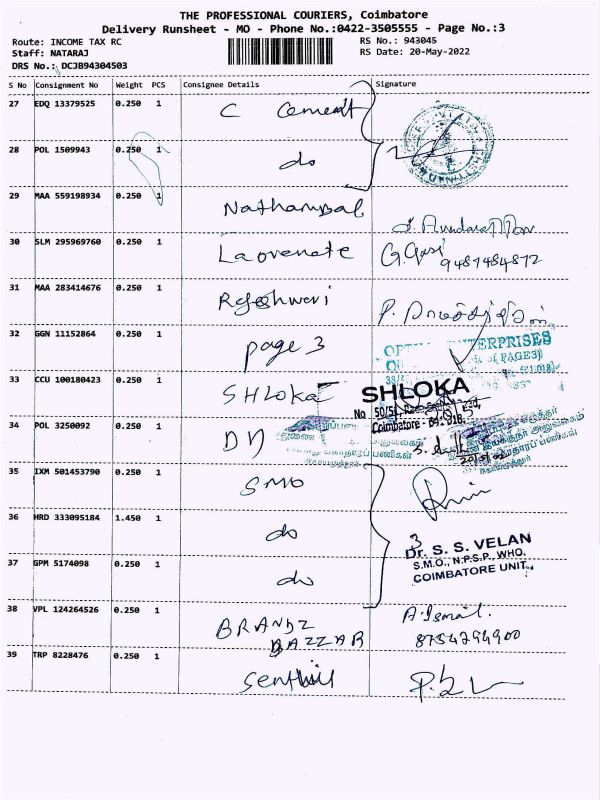 THE PROFESSIONAL COURIERS, Coimbatore
Delivery Runsheet - MO - Phone No.:0422-3505555 - Page No.:3
Route: INCOME TAX RC
RS No.: 943045
Staff: NATARAJ
RS Date: 20-May-2022
DRS No.: DCJB94304503
S No Consignment No Weight PCS Consignee Details Signature
27 EDQ 13379525 0.250 1 C Cement
28 POL 1509943 0.250 1 do
29 MAA 559198934 0.250 1 Nathampal
30 SLM 295969760 0.250 1 Laorenate G.Gasi 9487484872
31 MAA 283414676 0.250 1 Rajeshweri
32 GGN 11152864 0.250 1 page 3
ENTERPRISES
of PAGE3)
33 CCU 100180423 0.250 1 SHLOKA
SHLOKA
No 50/51,
Coimbatore - 641 018.
34 POL 3250092 0.250 1
35 IXM 501453790 0.250 1 SMO
36 HRD 333095184 1.450 1 do
3
Dr. S. S. VELAN
S.M.O., N.P.S.P., WHO.
COIMBATORE UNIT.
37 GPM 5174098 0.250 1 do
38 VPL 124264526 0.250 1 BRANDZ BAZZAR
A.Ismail.
8754294900
39 TRP 8228476 0.250 1 Senthil